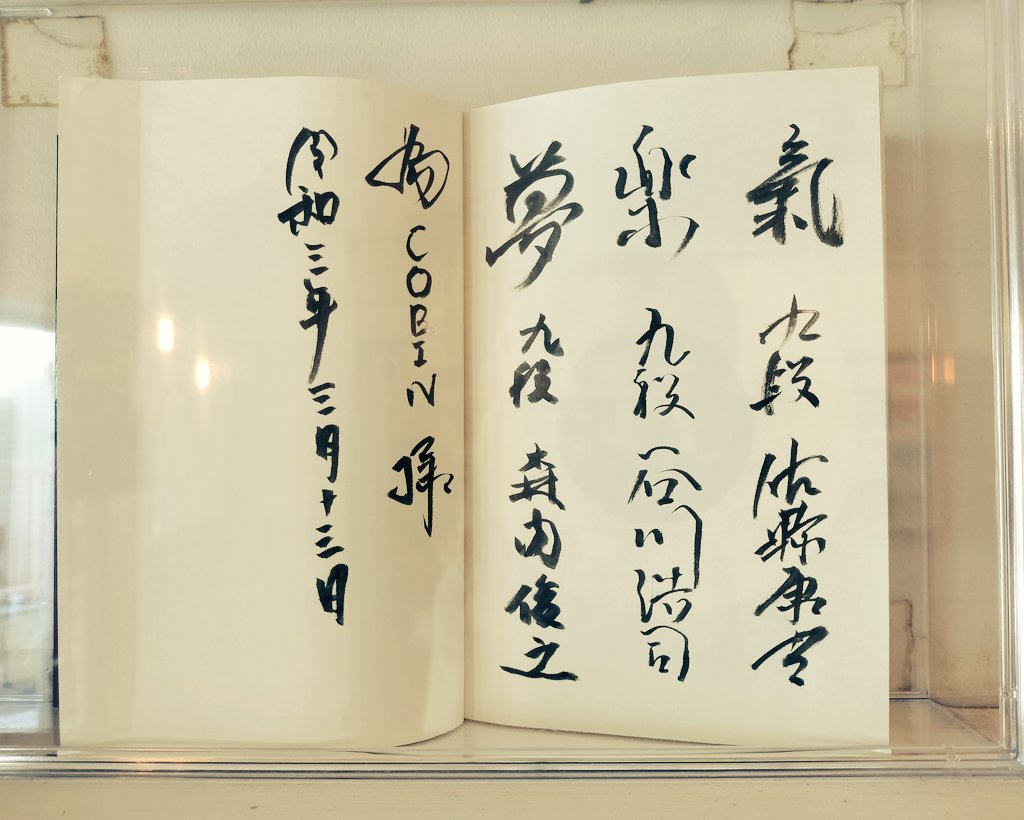 氣 九段 佐藤康光
楽 九段 谷川浩司
夢 九段 森内俊之
為 COBIN 様
令和三年三月十三日